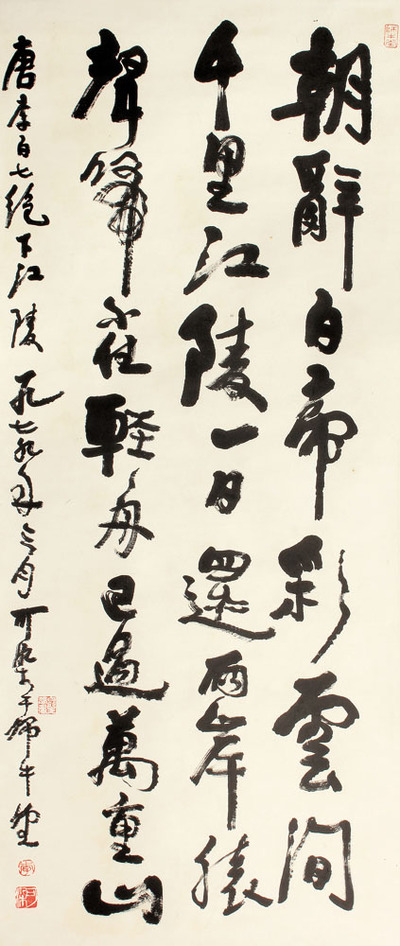 朝辭白帝彩雲間
千里江陵一日還兩岸猿
聲啼不住輕舟已過萬重山
唐李白七絕下江陵一九七九年三月可染書于師牛堂